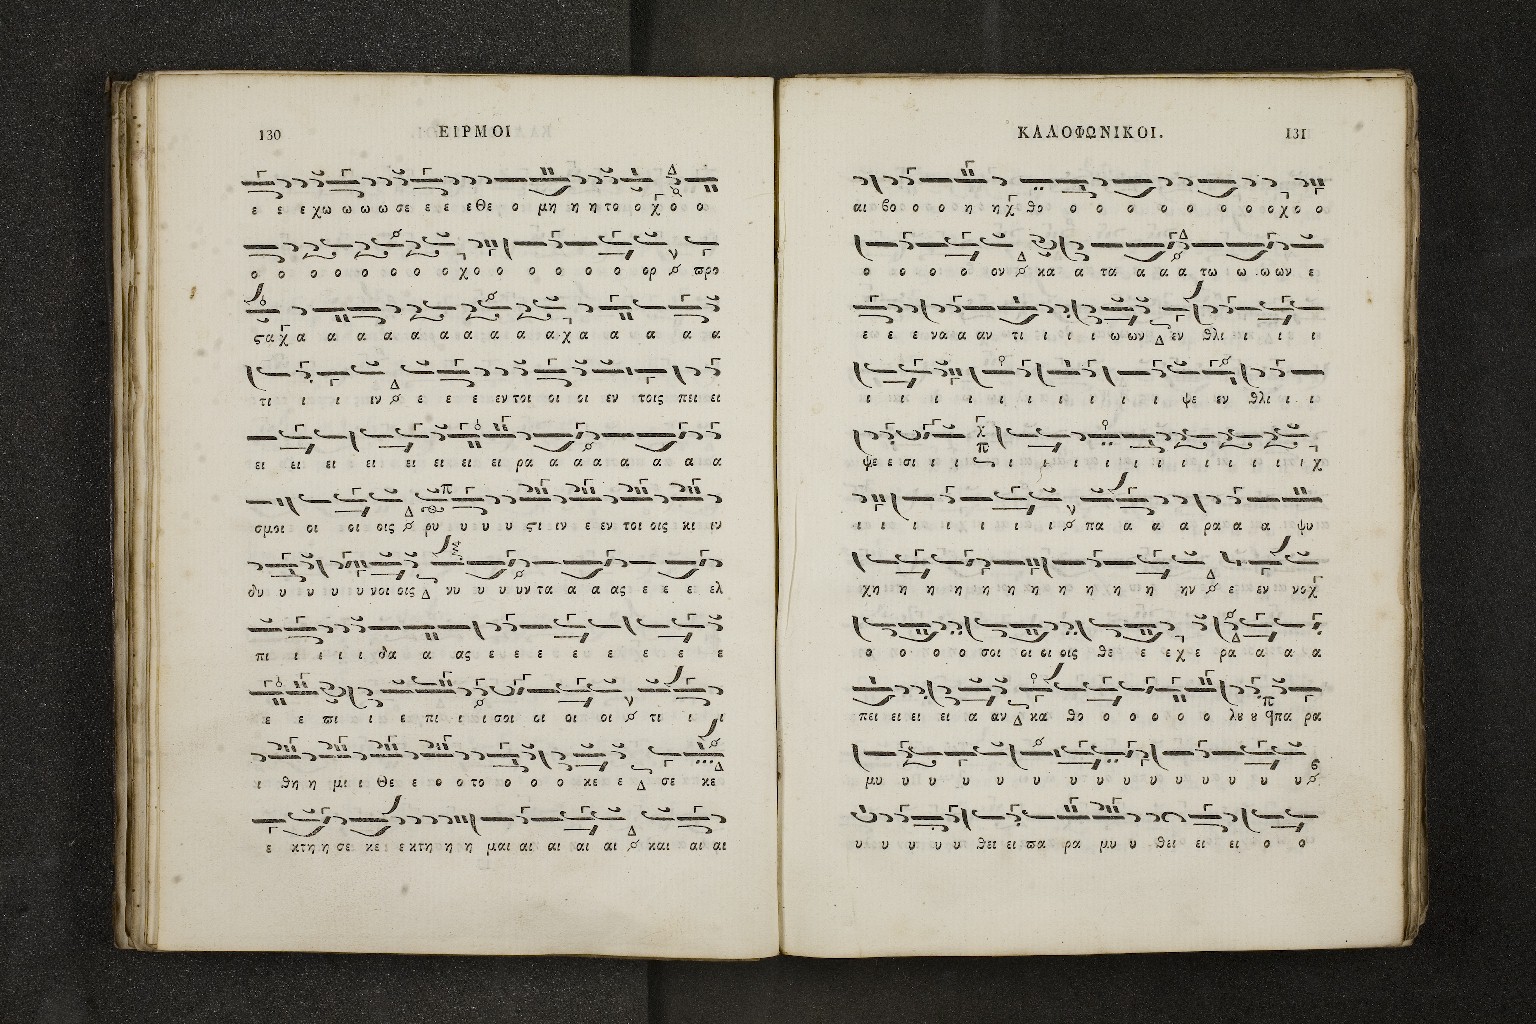 130 ΕΙΡΜΟΙ
ε ε ε χω ω ω ω σε ε ε ε Θε ο μη η η το ο χ ο ο
ο ο ο ο ο ο ο ο ο χο ο ο ο ο ο ορ προ
ςα χ α α α α α α α α α α χ α α α α α
τι ι ι ι ιν ε ε ε εν τοι οι οι εν τοις πει ει
ει ει ει ει ει ει ει ει ρα α α α α α α α
σμοι οι οι οις ρυ υ υ υ ςι ιν ε εν τοι οις κι ιν
δυ υ υ υ υ υνοι οις Δ νυ υ υ υν τα α α ας ε ε ε ελ
πι ι ε ι ι δα α ας ε ε ε ε ε ε ε ε
ε ε πι ι ε πι ι ισοι οι οι οι τι ι ι
ι θη η μι ι Θε ε ο ο το ο ο ο κε ε Δ σε κε
ε κτη η σε κε ε κτη η η μαι αι αι αι αι και αι αι
ΚΑΛΟΦΩΝΙΚΟΙ. 131
αι βο ο ο η η χ θο ο ο ο ο ο ο ο ο ο χο ο
ο ο ο ο ον κα α τα α α α τω ω ω ων ε
ε ε ε να α αν τι ι ι ι ω ων Δ εν θλι ι ι ι
ι ι ι ι ι ι ι ι ι ι ι ι ψε εν θλι ι ι
ψε ε σι ι ι ι ι ι ι ι ι ι ι ι ι ι ι χ
ι ι ι ι ι ι ι πα α α α ρα α α ψυ
χη η η η η η η η η η η ην ε εν νοχ
ο ο ο ο σοι οι οι οις θε ε ε χ ε ρα α α α
πει ει ει ει α αν Δ κα θο ο ο ο ο ο λυ υ πα ρα
μυ υ υ υ υ υ υ υ υ υ υ υ υ υ υ
υ υ υ υ υ θει ει πα ρα μυ υ θει ει ει ο ο